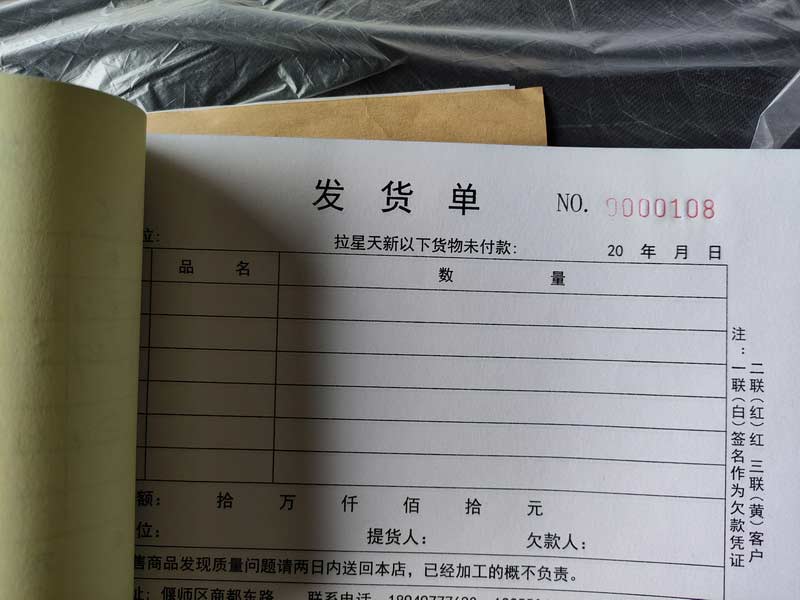 发货单 NO. 0000108
位: 拉星天新以下货物未付款: 20 年 月 日
品名 数量
额: 拾 万 仟 佰 拾 元
位: 提货人: 欠款人:
售商品发现质量问题请两日内送回本店，已经加工的概不负责。
址: 偃师区商都东路 联系电话
注：一联(白)签名作为欠款凭证
二联(红)红 三联(黄)客户